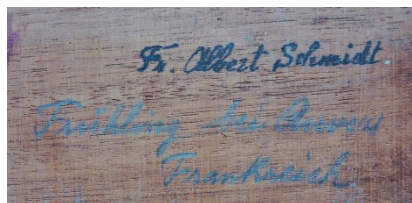 Fr. Albert Schmidt.
Frühling
Frankreich.